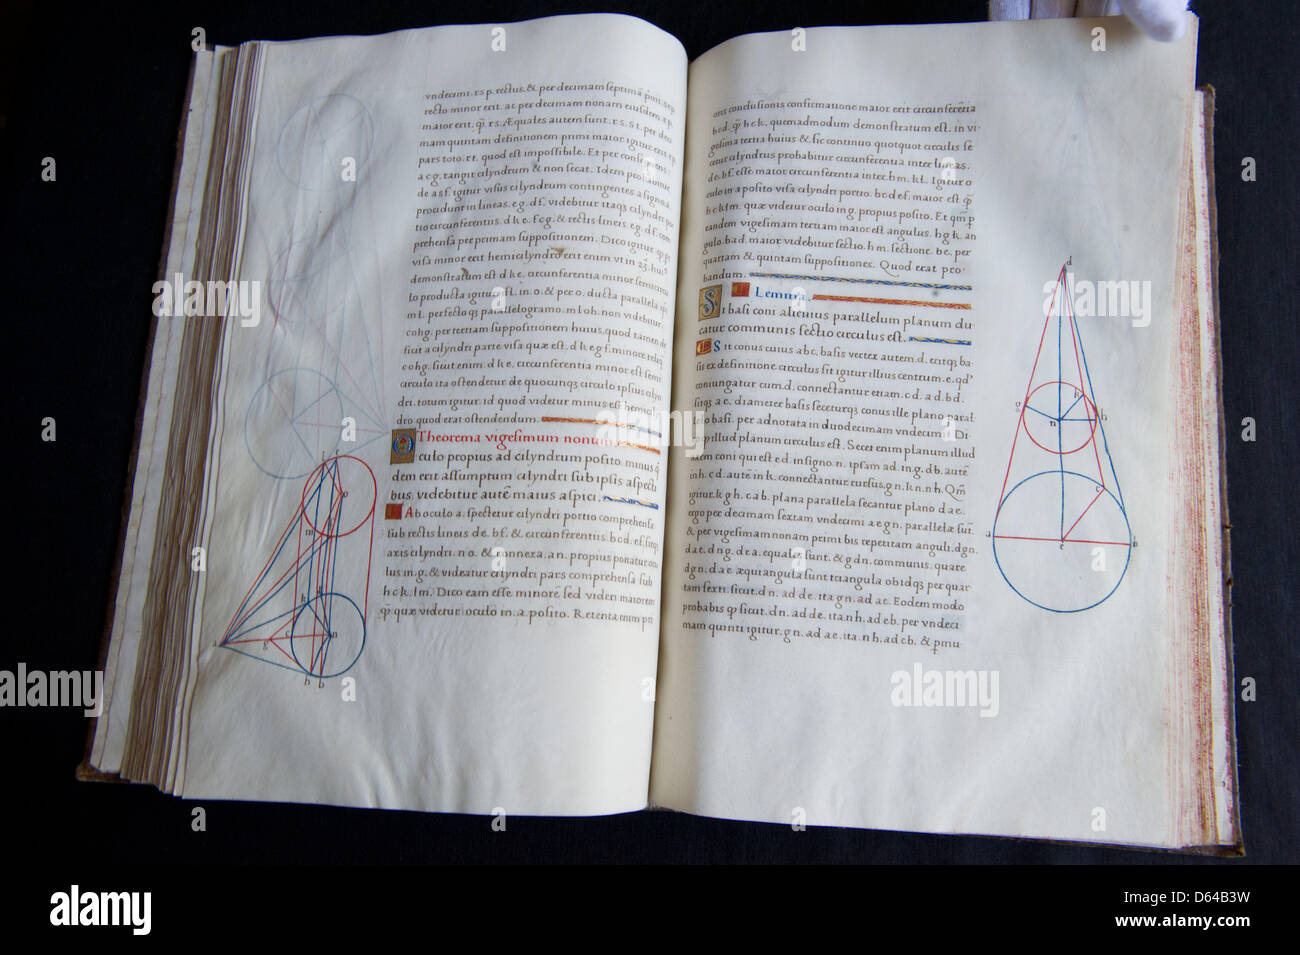 vndecimi. rs p. rectus. & per decimam septimā
recto minor erit. ac per decimam nonam eiusdem
maior erit. q̄ rs. Æquales autem sunt. rs. st. per deci
mam quintam definitionem primi maior igitur erit
pars toto. rt. quod est impossibile. Et per consequens
a cg. tangit cilyndrum & non secat. Idem probabitur
de a s f. igitur visus cilyndrum contingentes a signo. a.
procidunt in lineas. eg. df. videbitur itaq; cilyndri por
tio circunferentiis. dke. fcg. & rectis lineis. eg. df. com
prehensa per primam suppositionem. Dico igitur
visa minor erit hemicilyndro erit enim vt in 23. huiˢ
demonstratum est dke. circunferentia minor semicircu
lo producta igitur sl. in. o. & per o. ducta parallela
ml. perfecto q; parallelogramo. mloh. non videbitur.
cohg. per tertiam suppositionem huius. quod tamen de
fiuit a cilyndri parte visa quæ est. dkegf. minore
cohg. siuit enim. dke. circunferentia minor est semi
circulo ita ostendetur de quocunq; circulo ipsius cilyn
dri. totum igitur id quod videtur minus est hemicilyn
dro quod erat ostendendum.
Theorema vigesimum nonum.
Oculo propius ad cilyndrum posito. minus q̄
dem erit assumptum cilyndri sub ipsis aspecti
bus. videbitur autē maius aspici.
Ab oculo a. spectetur cilyndri portio comprehensa
sub rectis lineis de. bf. & circunferentiis. bcd. ef. sitq;
axis cilyndri. no. & connexa. an. propius ponatur ocu
lus in. g. & videatur cilyndri pars comprehensa sub
hck. lm. Dico eam esse minorē sed videri maiorem
q̄ quæ videtur oculo in. a. posito. Retenta enim pri
oris conclusionis confirmatione maior erit circunferētia
bcd. q̄ hck. quemadmodum demonstratum est. in vi
gesima tertia huius & sic continuo quotquot circulis se
cetur cilyndrus probabitur circunferentia inter lineas.
de. bf. esse maior circunferentia inter. hm. kl. Igitur o
culo in a posito visa cilyndri portio. bcdef. maior est q̄
hcklm. quæ videtur oculo in g. propius posito. Et qm̄ p
eandem vigesimam tertiam maior est angulus. hgk. an
gulo. bad. maior videbitur sectio. hm. sectione. be. per
quartam & quintam suppositiones. Quod erat pro
bandum.
Lemma.
Si basi coni alicuius parallelum planum du
catur communis sectio circulus est.
Sit conus cuius abc. basis vertex autem. d. eritq; ba
sis ex definitione circulus sit igitur illius centrum. e. qd'
coniungatur cum. d. connectantur etiam. cd. ad. bd.
sitq; ae. diameter basis seceturq; conus ille plano paral
lelo basi. per adnotata in duodecimam vndecimi. Di
co q̄ illud planum circulus est. Secet enim planum illud
axem coni qui est ed. in signo. n. ipsam ad. in. g. db. autē
in h. cd. autē in k. connectantur rursus. gn. kn. nh. Qm̄
igitur. kgh. cab. plana parallela secantur plano dae.
ergo per decimam sextam vndecimi aegn. parallelæ sūt
& per vigesimam nonam primi bis repetitam anguli. dgn.
dae. dng. dea. equales sunt. & gdn. communis. quare
dgn. dae æquiangula sunt triangula ob idq; per quar
tam sexti sicut. dn. ad de. ita gn. ad ae. Eodem modo
probabis q̄ sicut. dn. ad de. ita. nh. ad eb. per vndeci
mam quinti igitur. gn. ad ae. ita. nh. ad eb. & pmu
d
g
n
k
h
a
e
c
b
o
m
k
c
n
g
h
b
alamy
alamy stock photo
Image ID: D64B3W
www.alamy.com